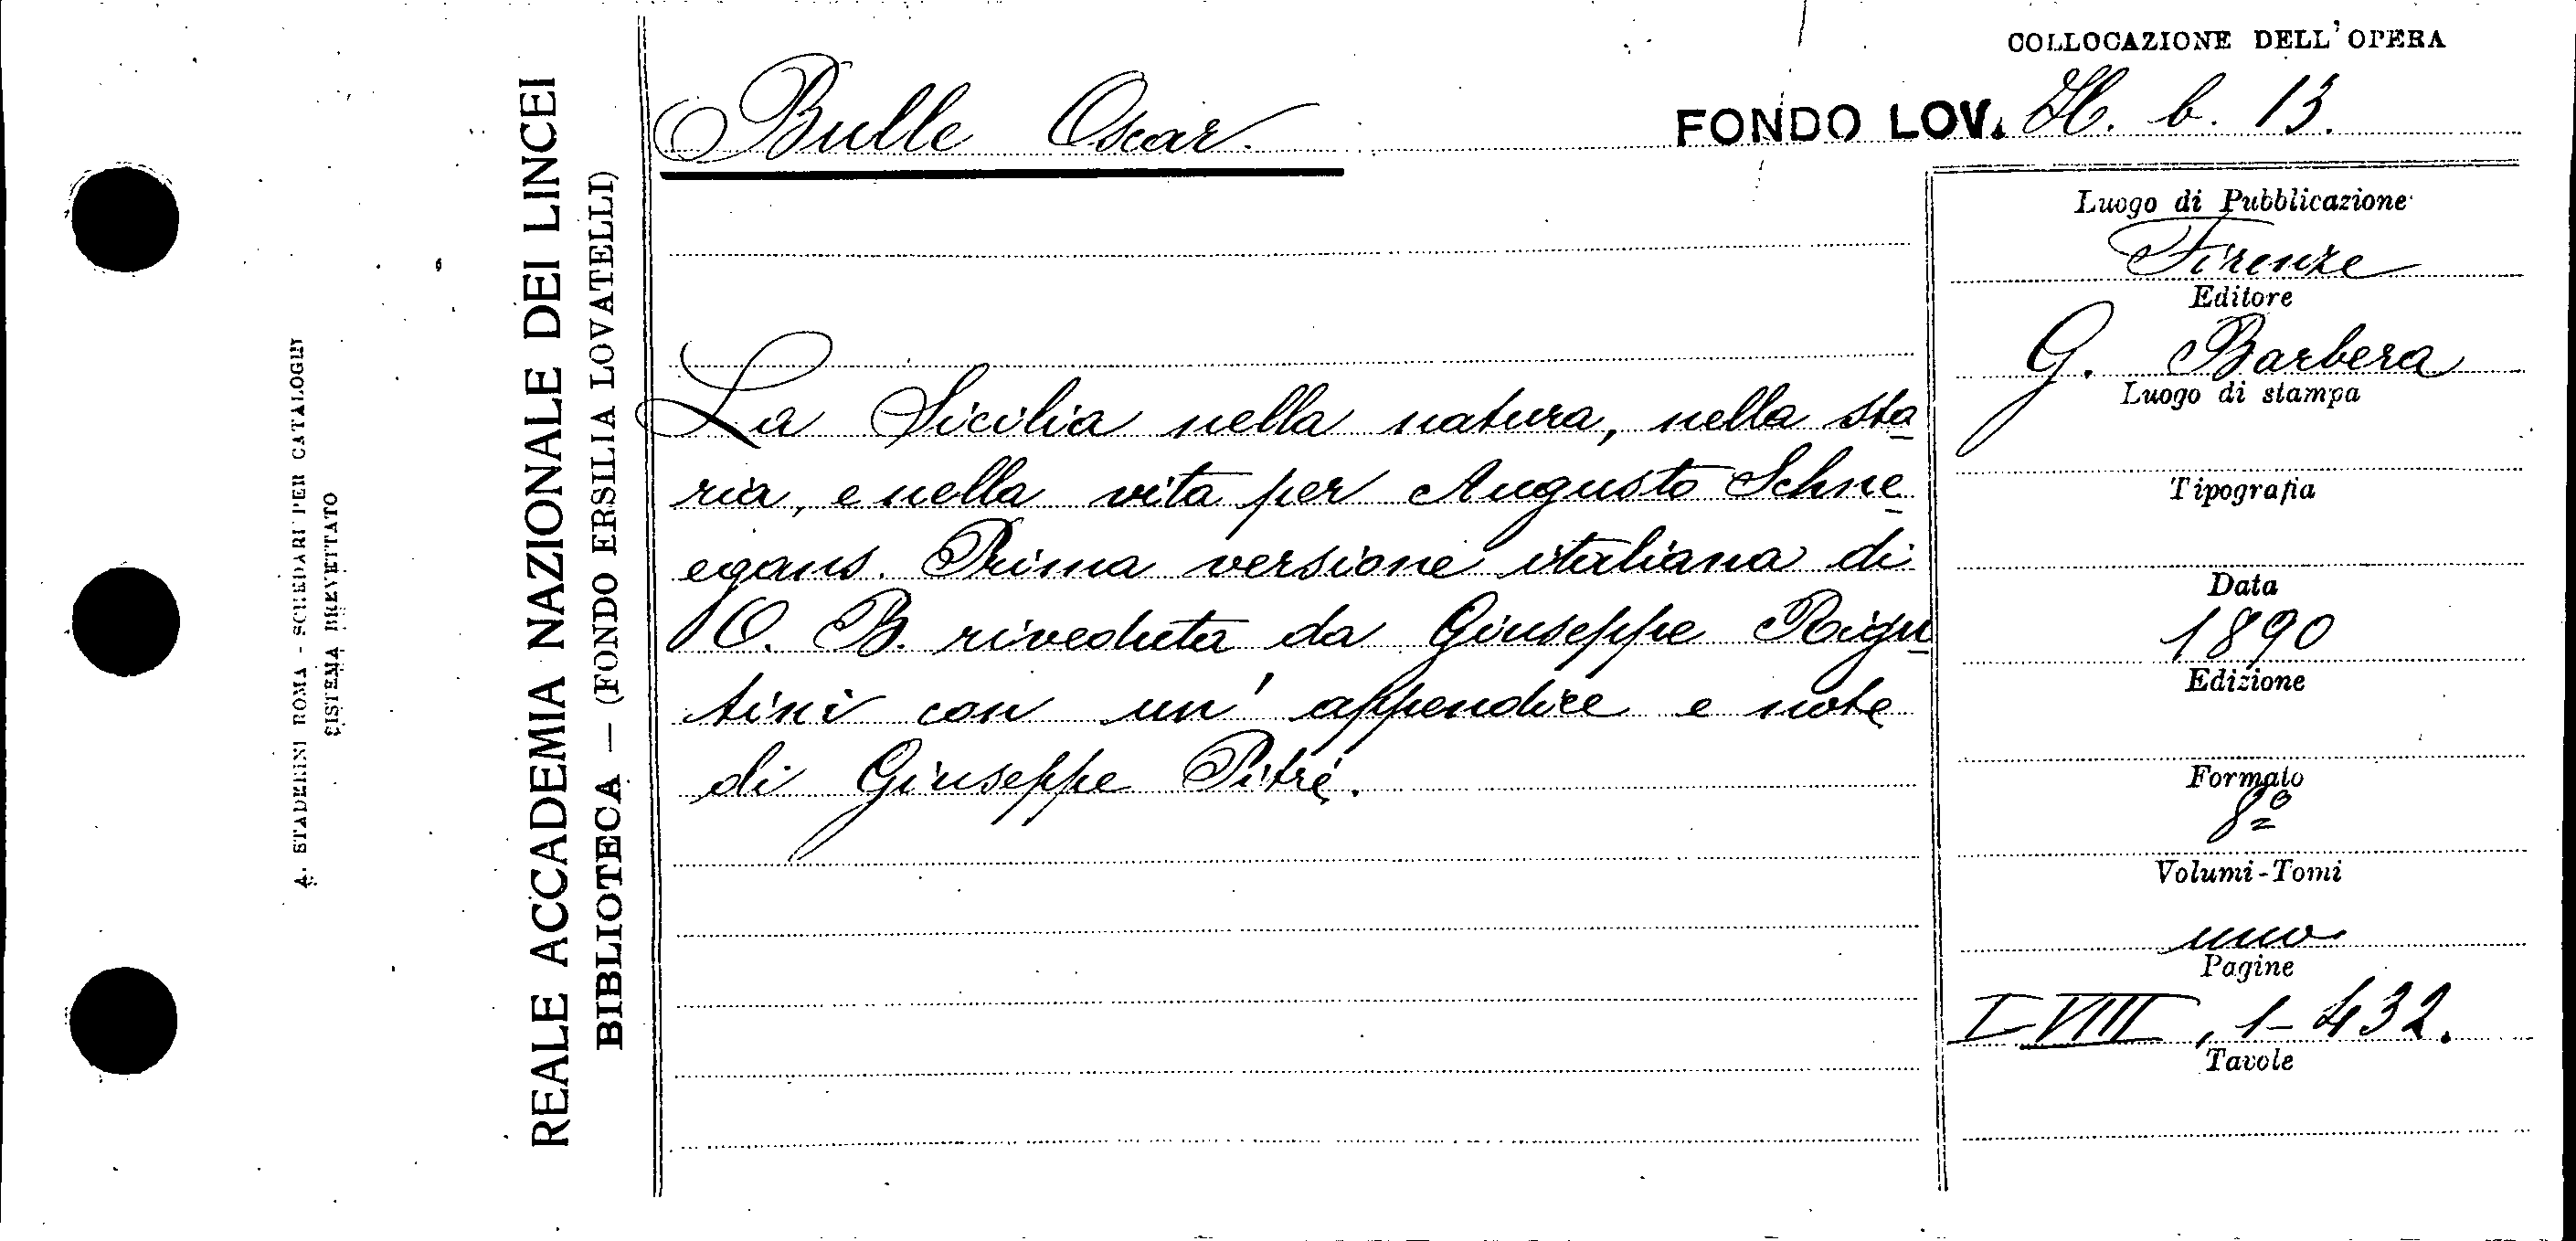 COLLOCAZIONE DELL'OPERA
Bulle Oscar.
FONDO LOV. H. b. 13.
La Sicilia nella natura, nella sto
ria, e nella vita per Augusto Schne
egans. Prima versione italiana di
O. B. riveduta da Giuseppe Rigu
tini con un' appendice e note
di Giuseppe Pitré.
Luogo di Pubblicazione
Firenze
Editore
G. Barbera
Luogo di stampa
Tipografia
Data
1890
Edizione
Formato
8º
Volumi-Tomi
uno
Pagine
I-VIII, 1-432.
Tavole
REALE ACCADEMIA NAZIONALE DEI LINCEI
BIBLIOTECA — (FONDO ERSILIA LOVATELLI)
A. STADERINI ROMA - SCHEDARI PER CATALOGHI
SISTEMA BREVETTATO